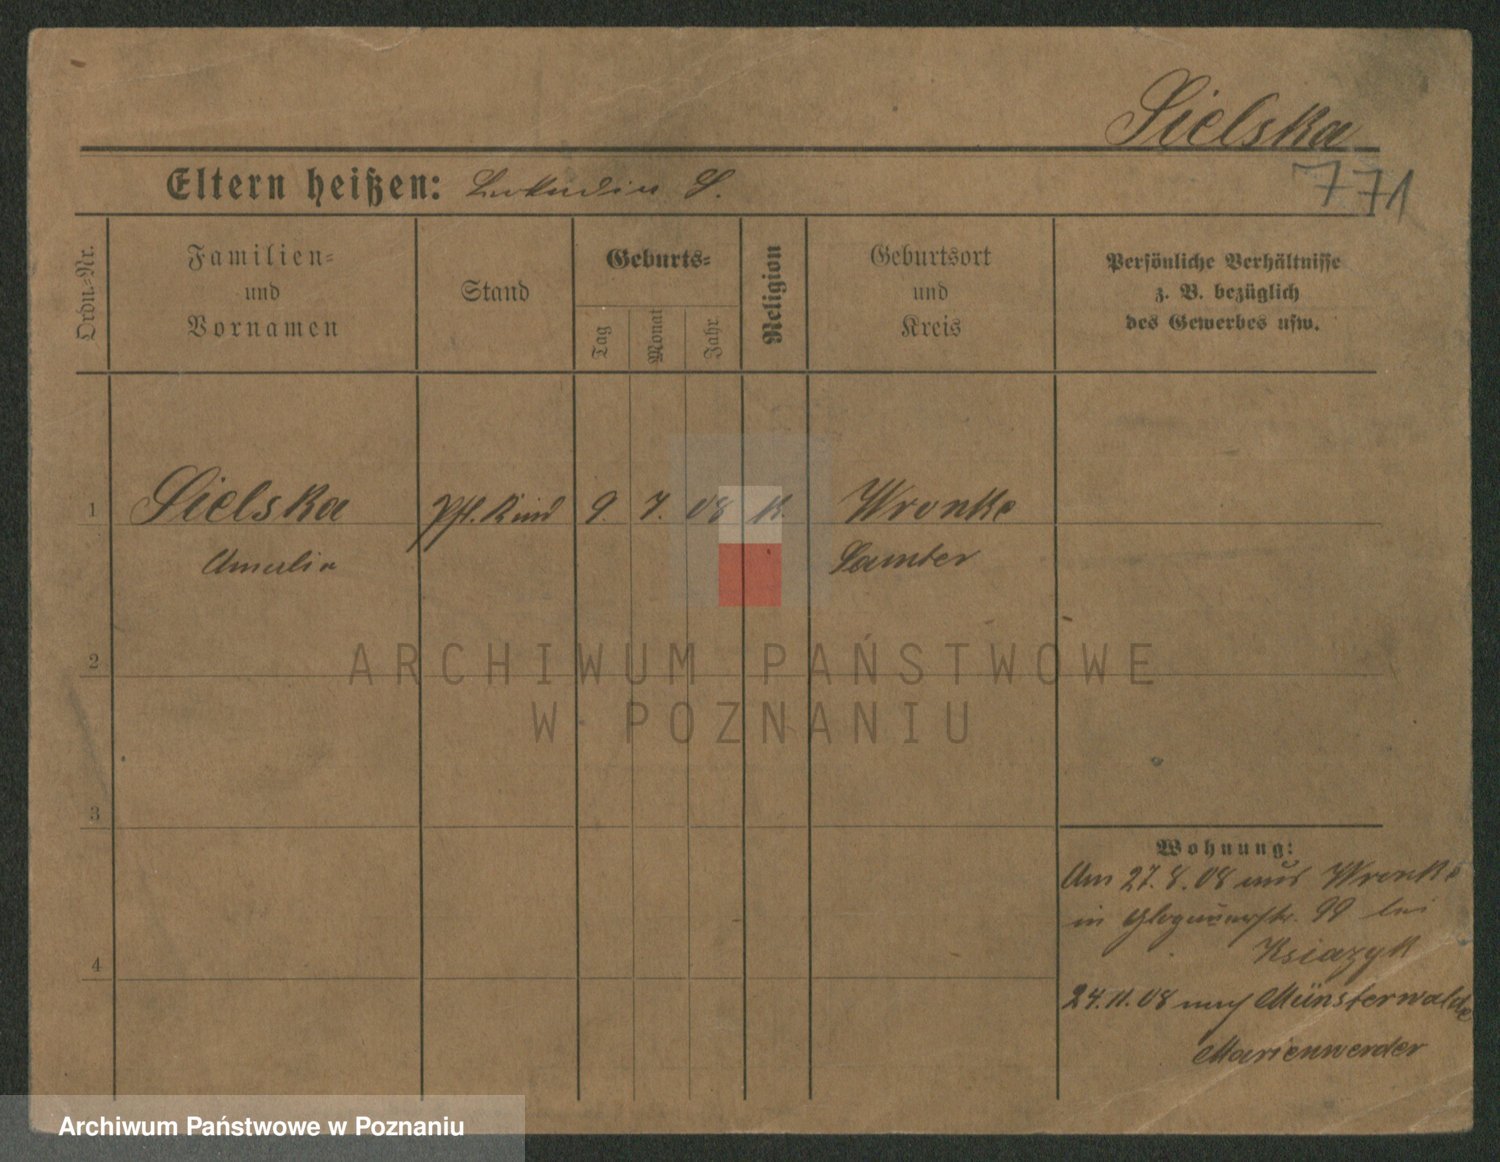 Sielska
771
Eltern heißen: S.
Ordn.-Nr.
Familien-
und
Vornamen
Stand
Geburts-
Tag
Monat
Jahr
Religion
Geburtsort
und
Kreis
Persönliche Verhältnisse
z. B. bezüglich
des Gewerbes usw.
1 Sielska Pfl. Kind 9. 7. 08 K. Wronke
Amalia Samter
2
ARCHIWUM PAŃSTWOWE
W POZNANIU
3
Wohnung:
Am 27.8.08 aus Wronke
in Glogauerstr. 99 bei
Ksiazyk
4
24.11.08 nach Münsterwalde
Marienwerder
Archiwum Państwowe w Poznaniu